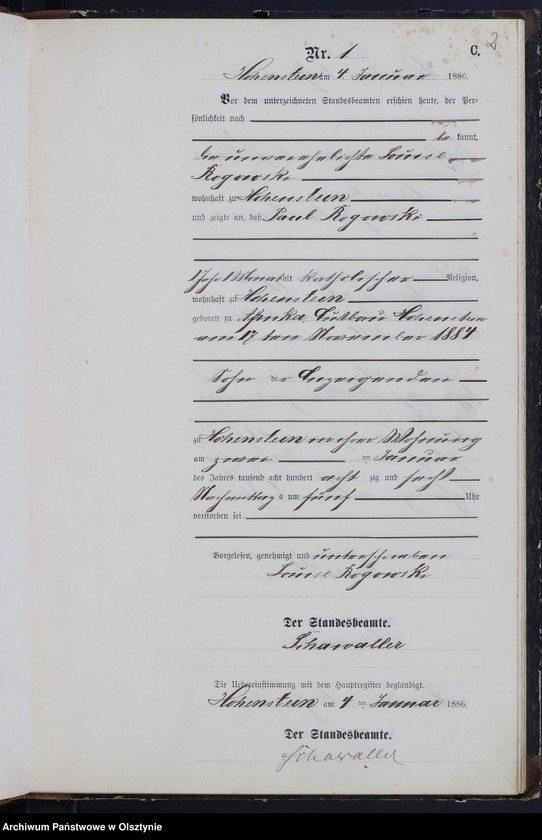 Nr. 1.
C.
2
Hohenstein am 4. Januar 1886.
Vor dem unterzeichneten Standesbeamten erschien heute, der Per-
sönlichkeit nach
be kannt,
die unverehelichte Louise
Rogowski
wohnhaft zu Hohenstein
und zeigte an, daß Paul Rogowski
1 Jahr 1 Monat alt katholischer Religion,
wohnhaft zu Hohenstein
geboren zu Hohenstein
am 17 ten November 1884
Sohn der Anzeigenden
zu Hohenstein in ihrer Wohnung
am zwei ten Januar
des Jahres tausend acht hundert acht zig und sechs
Nachmittags um fünf Uhr
verstorben sei
Vorgelesen, genehmigt und unterschrieben
Louise Rogowski
Der Standesbeamte.
Schawaller
Die Uebereinstimmung mit dem Hauptregister beglaubigt.
Hohenstein am 4 ten Januar 1886.
Der Standesbeamte.
Schawaller
Archiwum Państwowe w Olsztynie